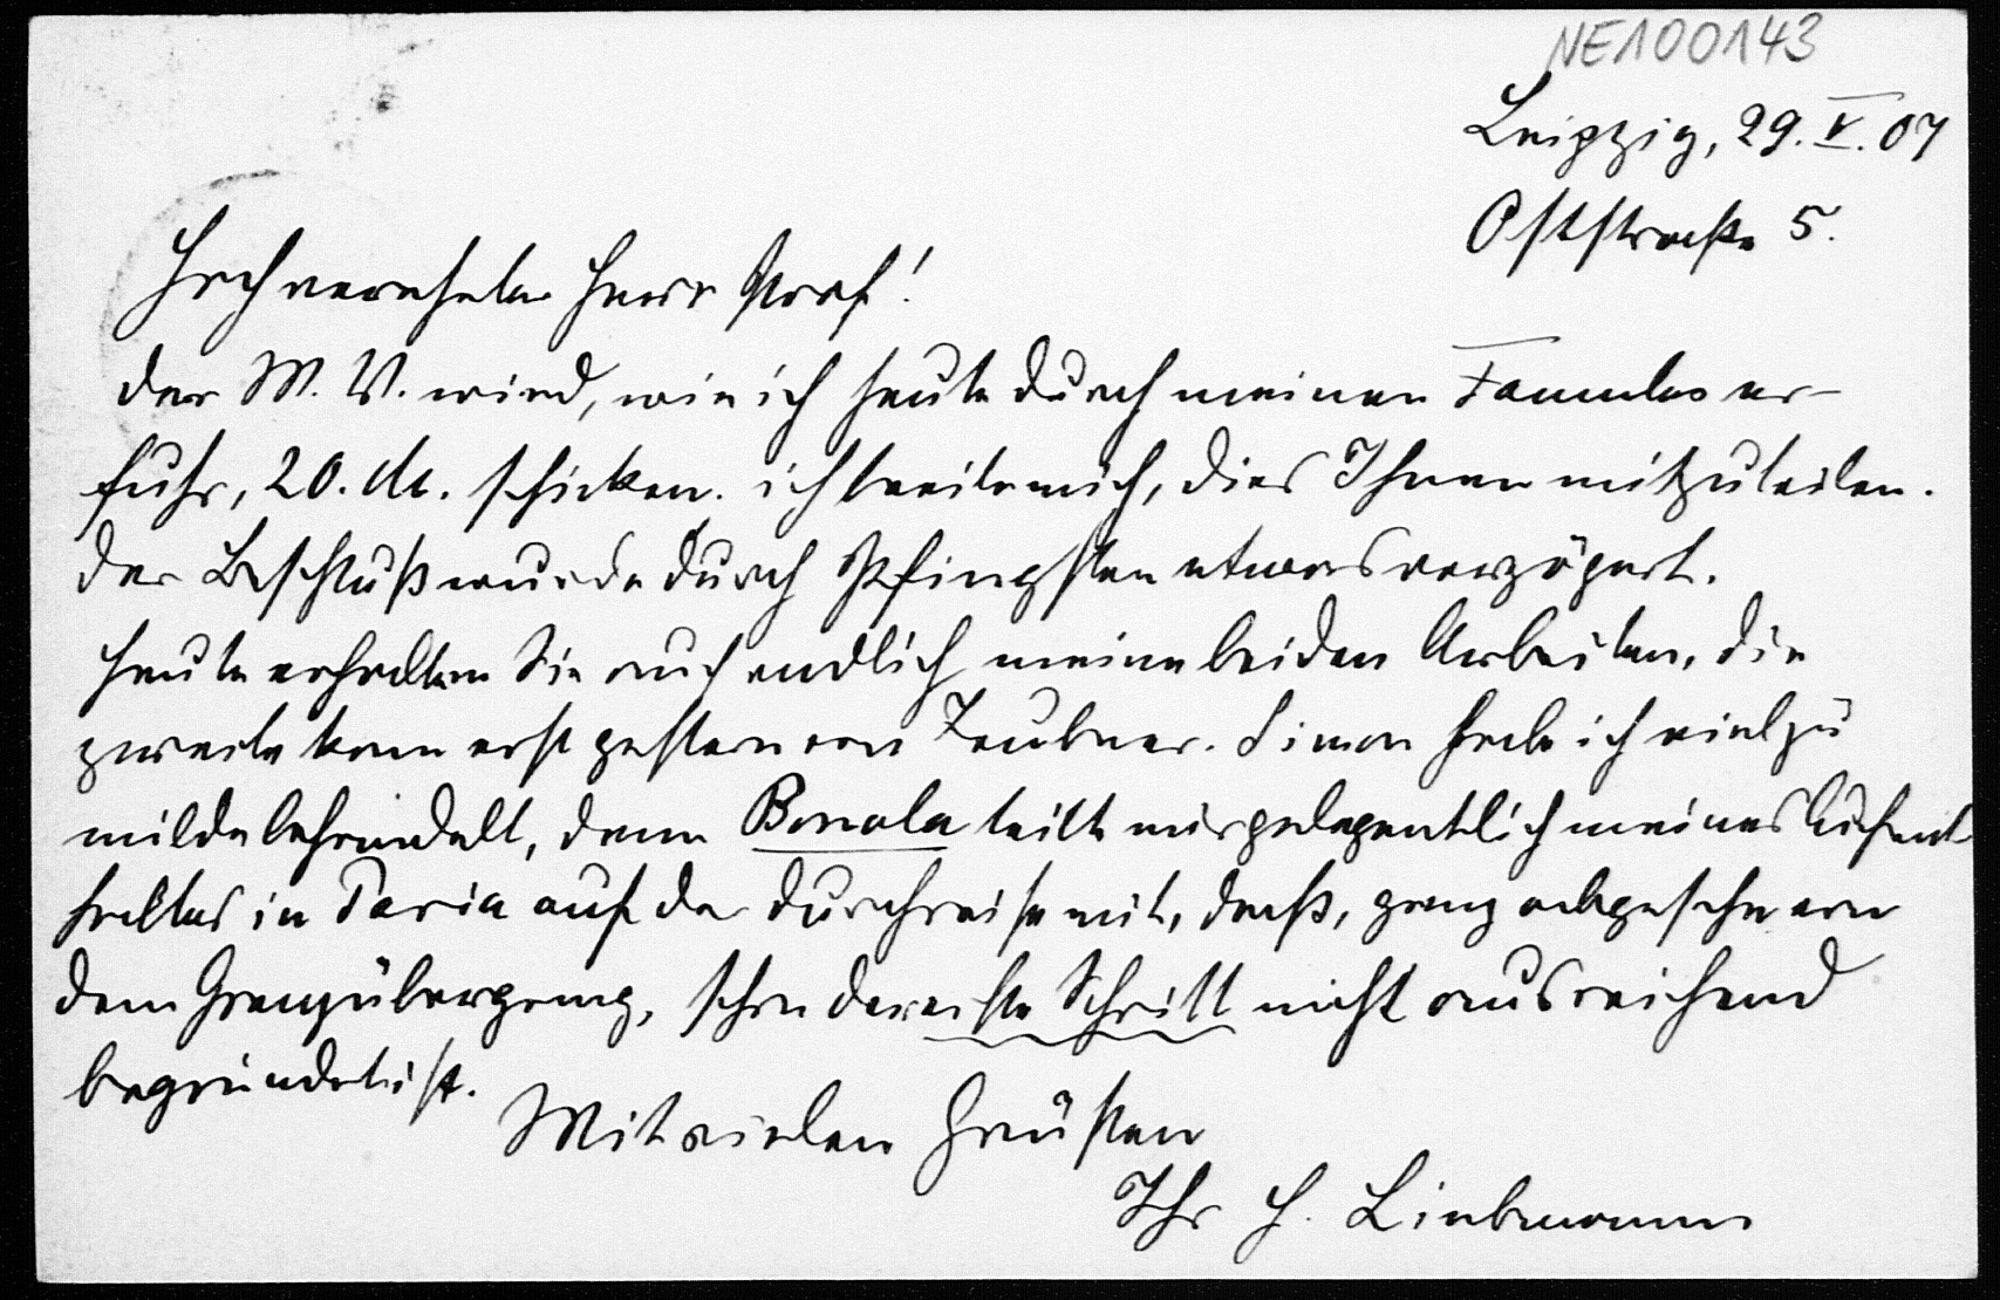 NE100143
Leipzig, 29. V. 07
Oststraße 5.
Hochverehrter Herr Prof!
der M. V. wird, wie ich heute durch meinen Famulus er-
fuhr, 20. M. schicken. ich beeile mich, dies Ihnen mitzuteilen.
der Beschluß wurde durch Pfingsten etwas verzögert.
Heute erhalten Sie auch endlich meine beiden Arbeiten, die
zweite kam erst gestern von Teubner. Simon habe ich viel zu
milde behandelt, denn Bonola teilte mir gelegentlich meines Aufent-
haltes in Pavia auf der Durchreise mit, daß, ganz abgesehn von
dem Grenzübergang, schon der erste Schritt nicht ausreichend
begründet ist.
Mit vielen Grüßen
Ihr H. Liebmann